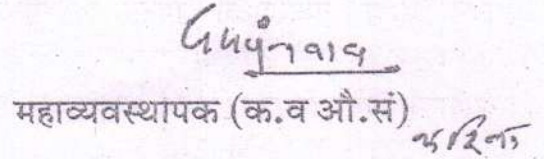 महाव्यवस्थापक (क.व औ.सं)
करिता